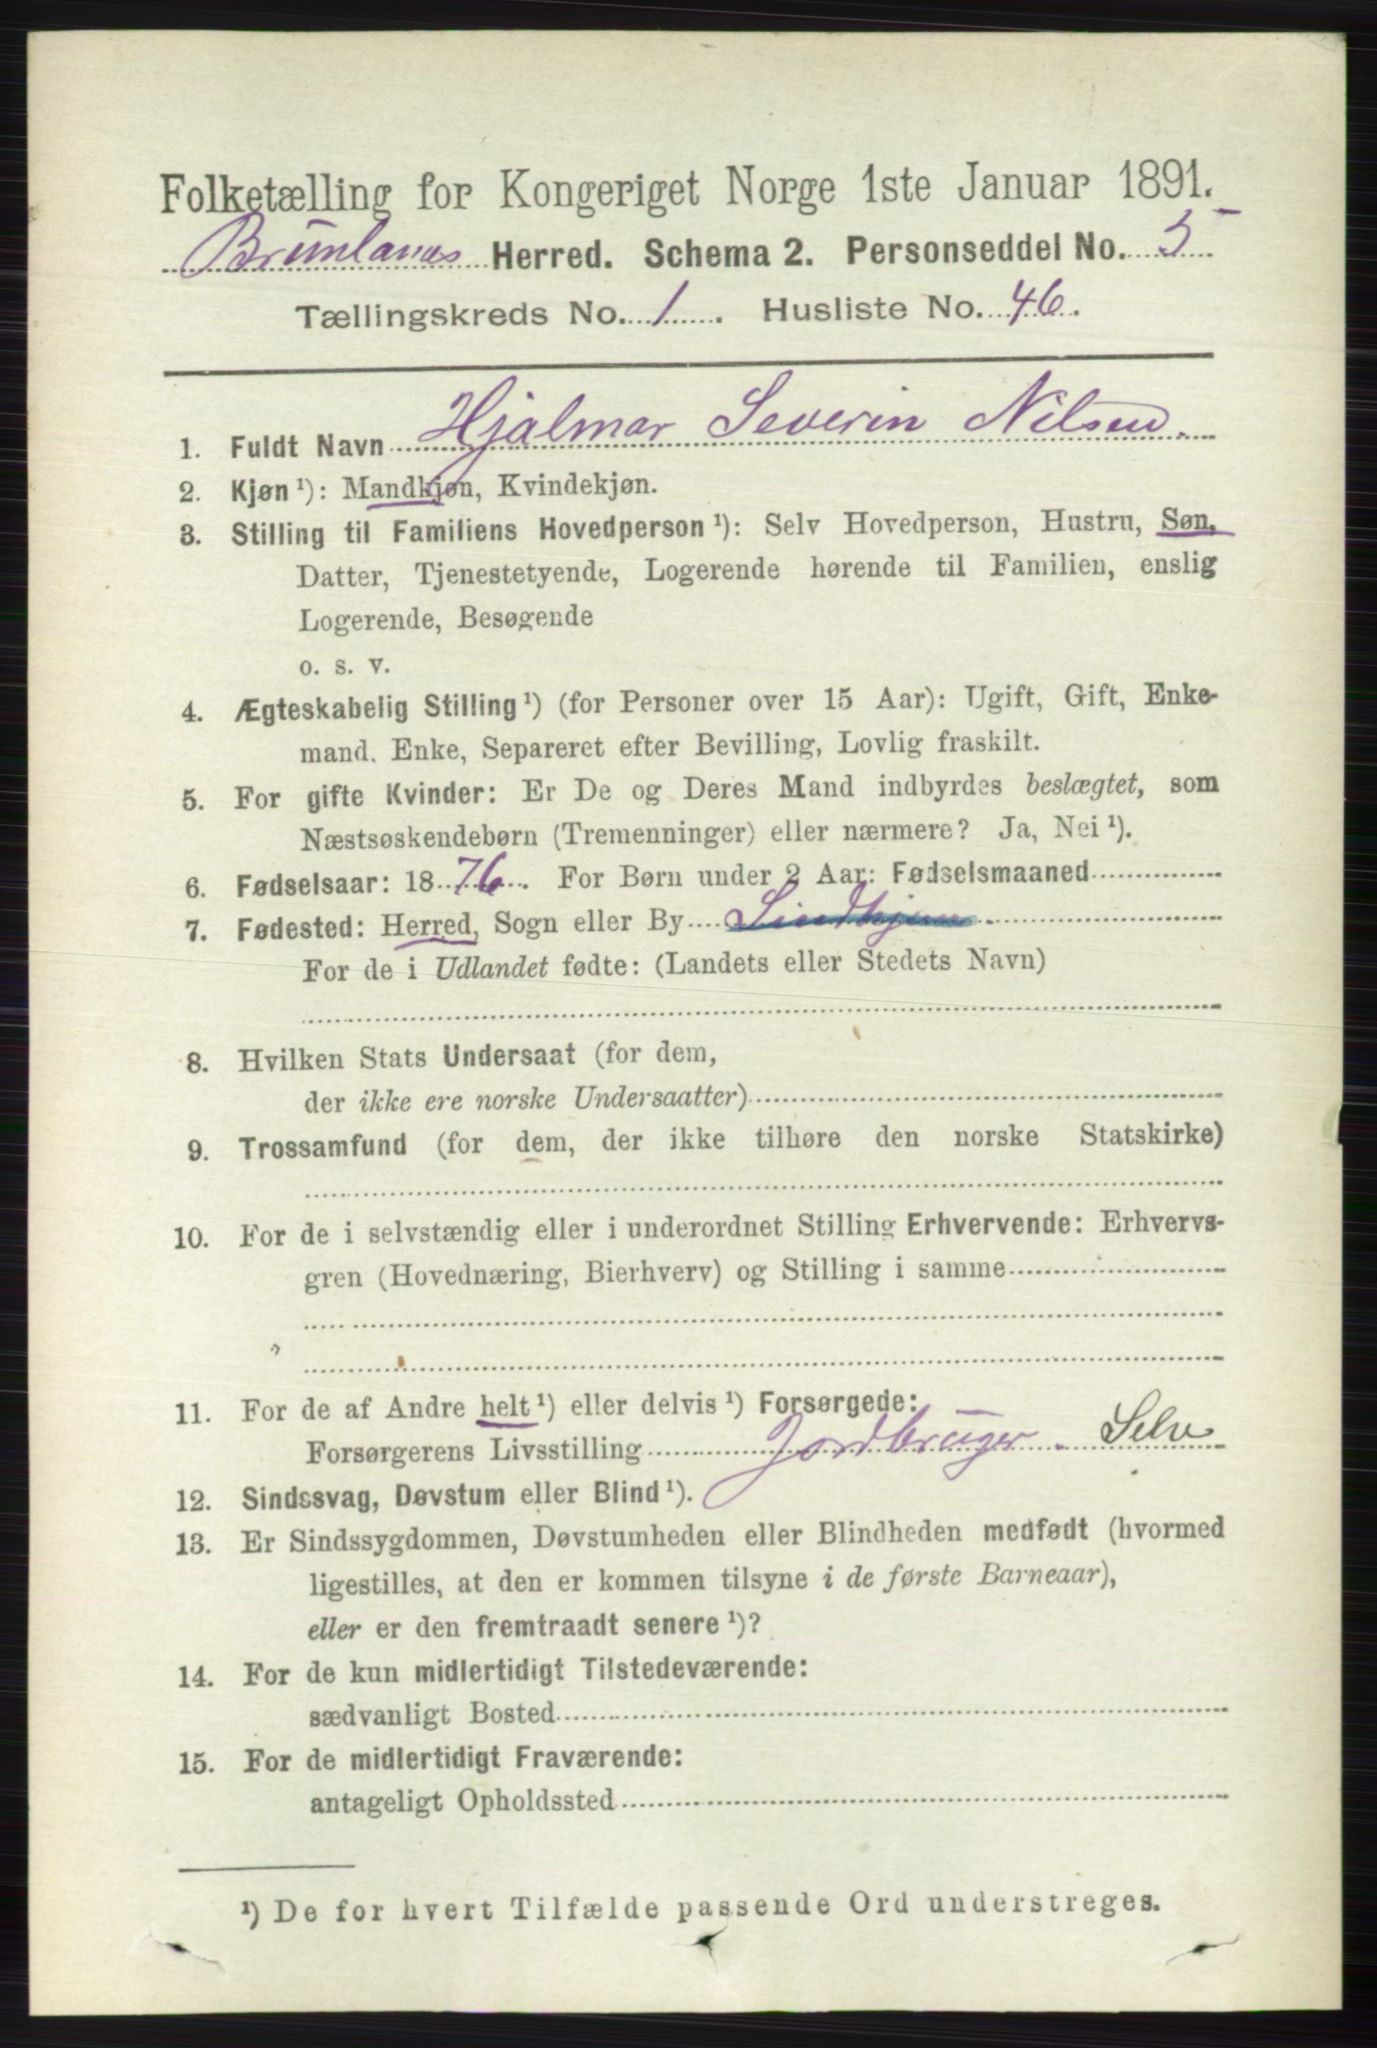 Folketælling for Kongeriget Norge 1ste Januar 1891.
Brunlanæs Herred. Schema 2. Personseddel No. 5
Tællingskreds No. 1. Husliste No. 46.
1. Fuldt Navn Hjalmar Severin Nilsen.
2. Kjøn ¹): Mandkjøn, Kvindekjøn.
3. Stilling til Familiens Hovedperson ¹): Selv Hovedperson, Hustru, Søn,
Datter, Tjenestetyende, Logerende hørende til Familien, enslig
Logerende, Besøgende
o. s. v.
4. Ægteskabelig Stilling ¹) (for Personer over 15 Aar): Ugift, Gift, Enke-
mand, Enke, Separeret efter Bevilling, Lovlig fraskilt.
5. For gifte Kvinder: Er De og Deres Mand indbyrdes beslægtet, som
Næstsøskendebørn (Tremenninger) eller nærmere? Ja, Nei ¹).
6. Fødselsaar: 1876. For Børn under 2 Aar: Fødselsmaaned
7. Fødested: Herred, Sogn eller By
For de i Udlandet fødte: (Landets eller Stedets Navn)
8. Hvilken Stats Undersaat (for dem,
der ikke ere norske Undersaatter)
9. Trossamfund (for dem, der ikke tilhøre den norske Statskirke)
10. For de i selvstændig eller i underordnet Stilling Erhvervende: Erhvervs-
gren (Hovednæring, Bierhverv) og Stilling i samme
11. For de af Andre helt ¹) eller delvis ¹) Forsørgede:
Forsørgerens Livsstilling Jordbruger. Selv
12. Sindssvag, Døvstum eller Blind ¹).
13. Er Sindssygdommen, Døvstumheden eller Blindheden medfødt (hvormed
ligestilles, at den er kommen tilsyne i de første Barneaar),
eller er den fremtraadt senere ¹)?
14. For de kun midlertidigt Tilstedeværende:
sædvanligt Bosted
15. For de midlertidigt Fraværende:
antageligt Opholdssted
¹) De for hvert Tilfælde passende Ord understreges.